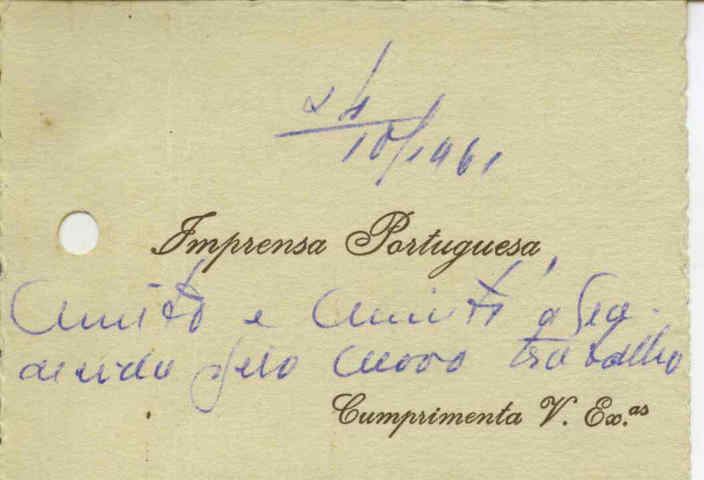 24
10/1961
Imprensa Portuguesa
Muito e Muito agra-
decido pelo novo trabalho
Cumprimenta V. Ex.ᵃˢ